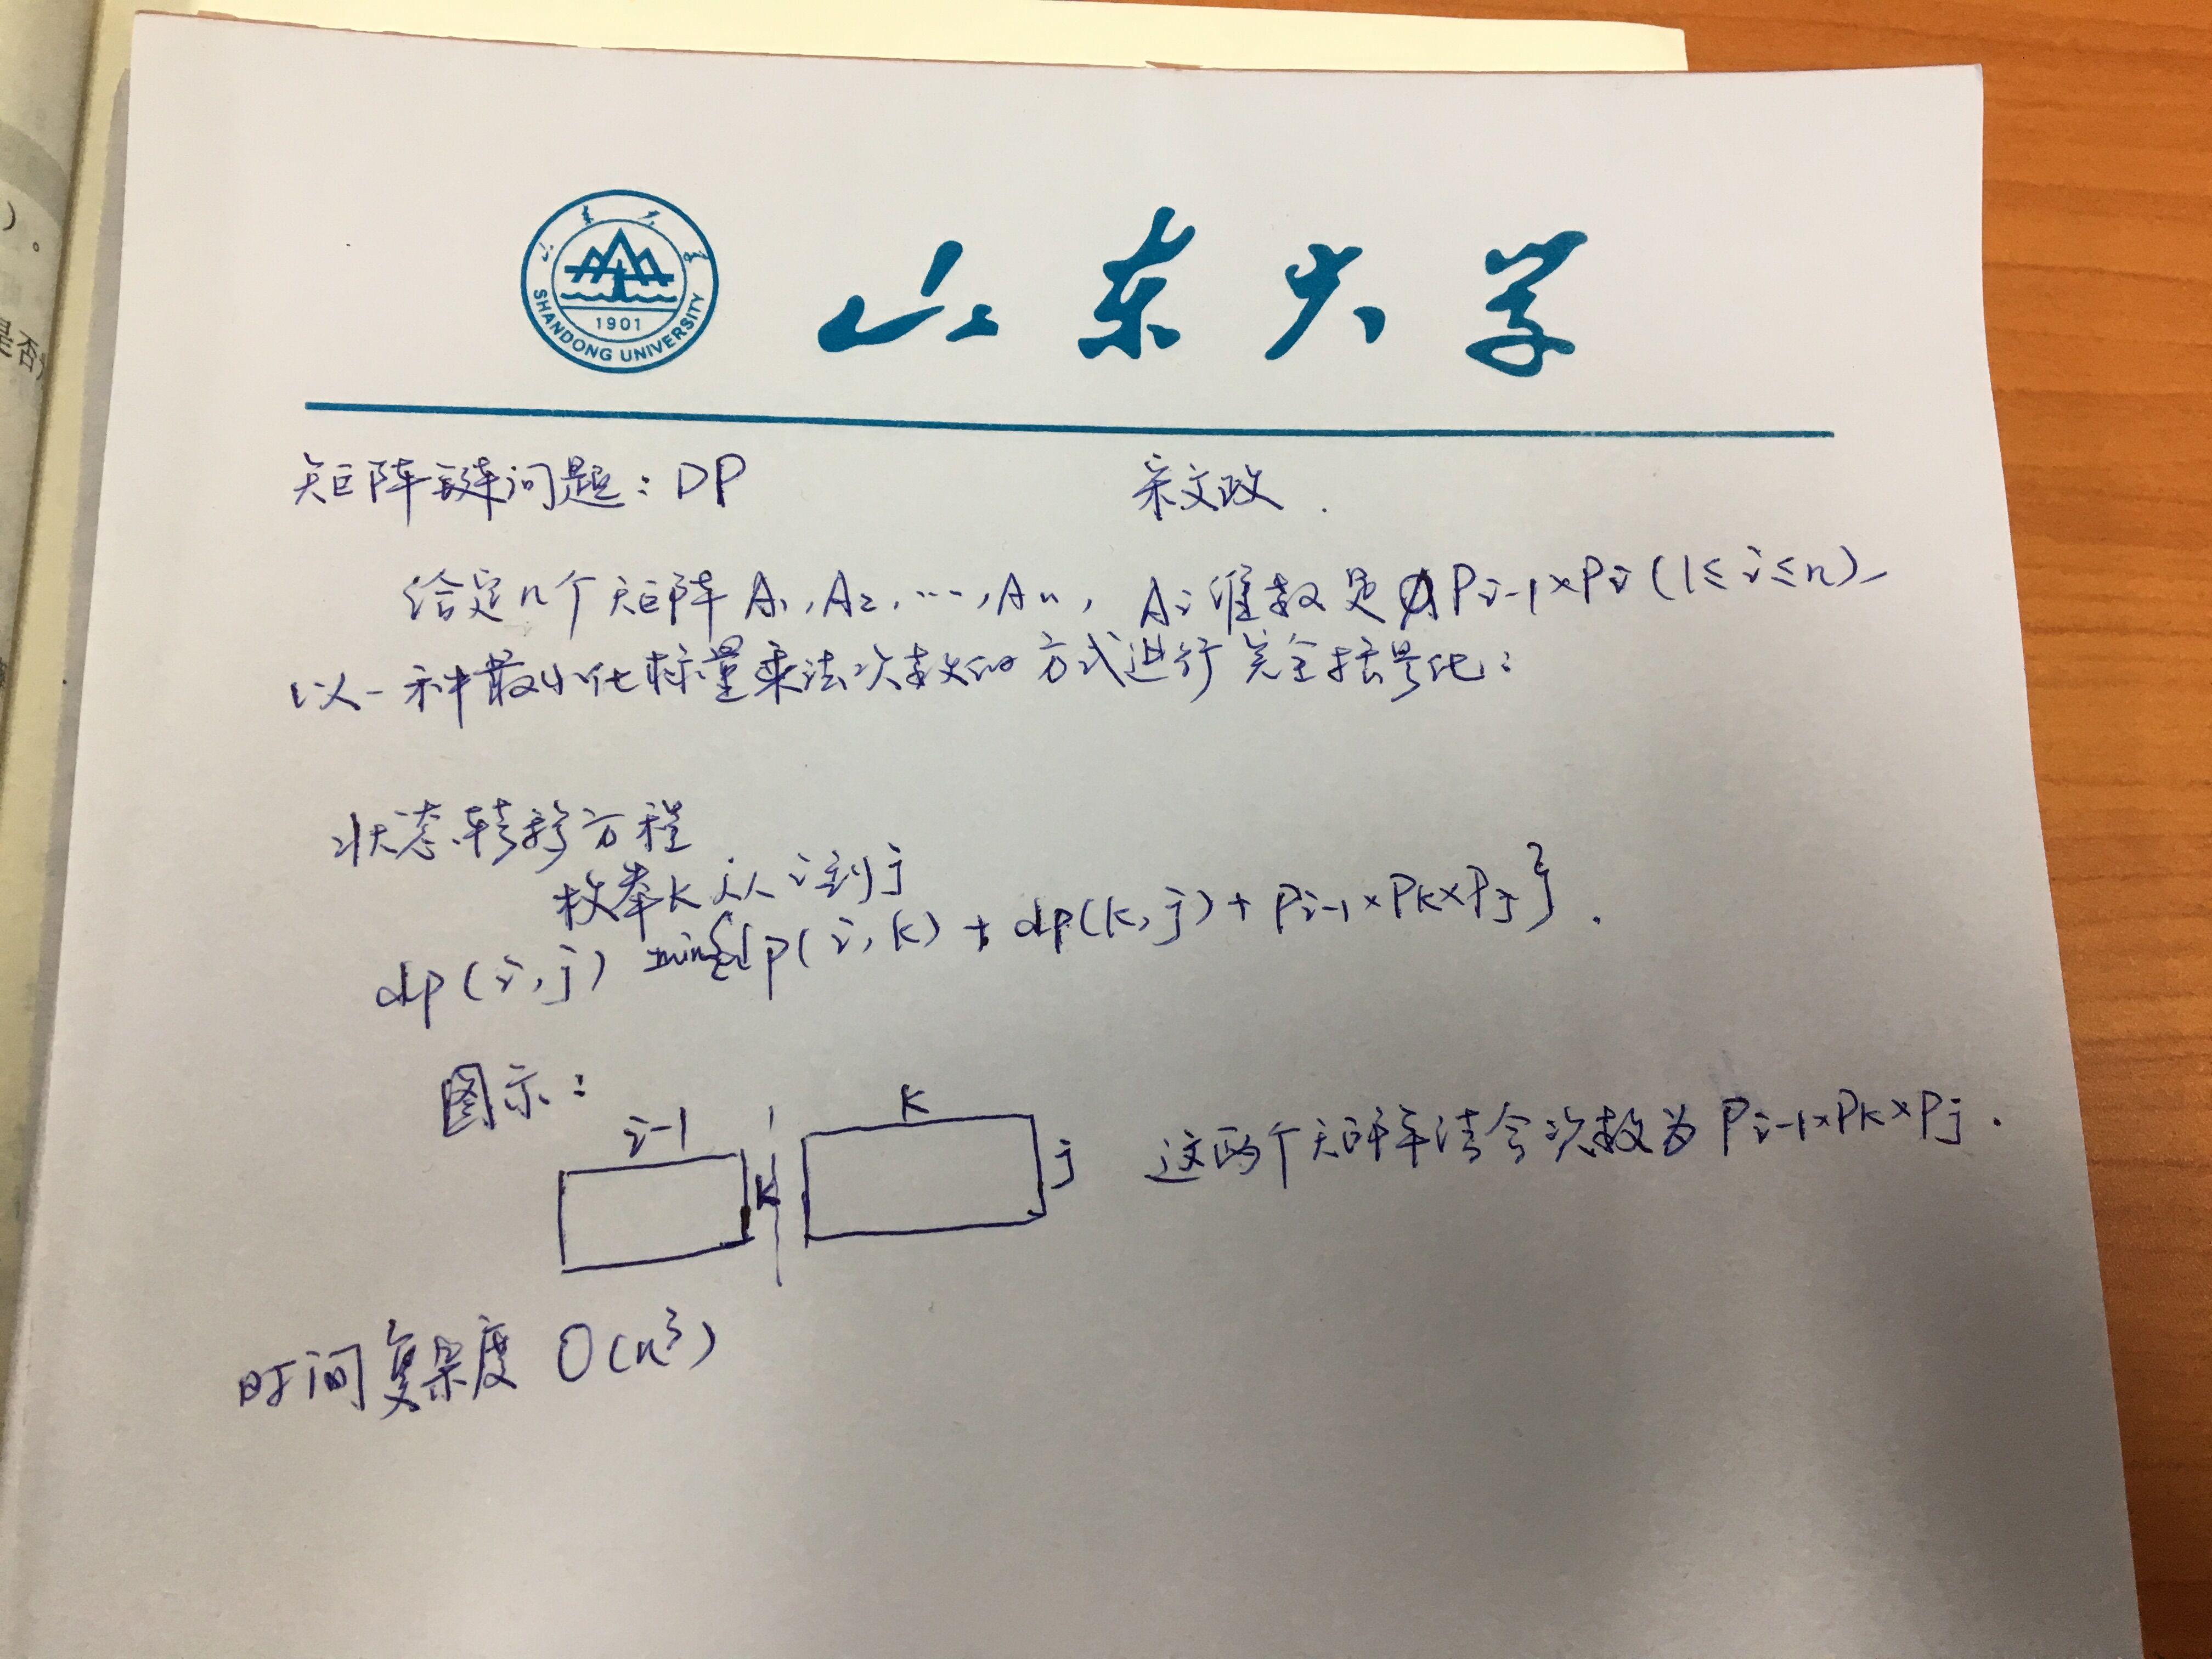 ）。
是否
山东大学
SHANDONG UNIVERSITY
1901
山东大学
矩阵链问题：DP 宋文政.
给定n个矩阵 A1, A2, ..., An, Ai维数是 Pi-1×Pi (1≤i≤n)
以一种最小化标量乘法次数的方式进行完全括号化：
状态转移方程
枚举K从i到j
dp(i,j) min{dp(i,k) + dp(k,j) + Pi-1×PK×Pj}.
图示：
i-1
K
K
j
这两个矩阵结合次数为 Pi-1×PK×Pj.
时间复杂度 O(n³)